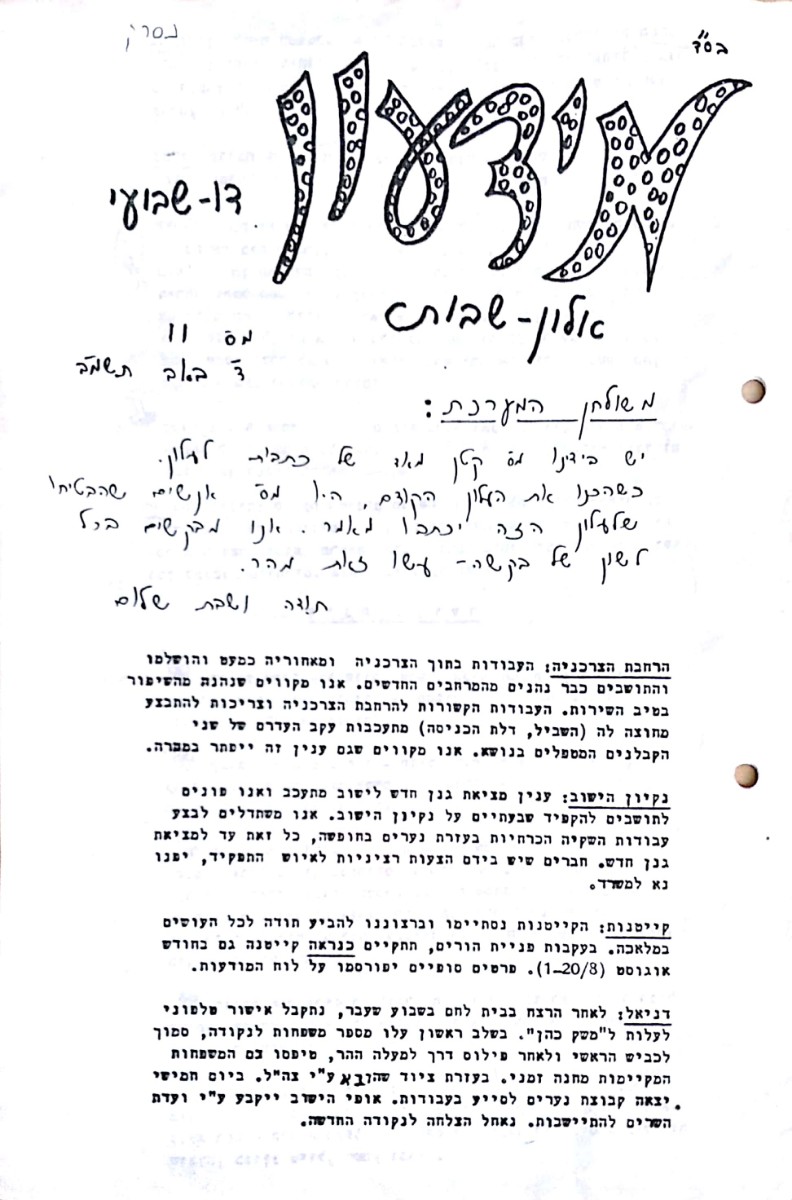 בס"ד
נסרק
מידעון
דו-שבועי
אלון-שבות
מס 11
ד' באב תשמ"ב
משולחן המערכת:
יש בידינו מס' קטן מאוד של כתבות לעלון.
כשהכנו את העלון הקודם, היו מס' אנשים שהבטיחו
שלעלון הזה יכתבו מאמר. אנו מבקשים בכל
לשון של בקשה- עשו זאת מהר.
תודה ושבת שלום
הרחבת הצרכניה: העבודות בתוך הצרכניה ומאחוריה כמעט והושלמו
והתושבים כבר נהנים מהמרחבים החדשים. אנו מקווים שנהנה מהשיפור
בטיב השירות. העבודות הקשורות להרחבת הצרכניה וצריכות להתבצע
מחוצה לה (השביל, דלת הכניסה) מתעכבות עקב העדרם של שני
הקבלנים המטפלים בנושא. אנו מקווים שגם ענין זה ייפתר במהרה.
נקיון הישוב: ענין מציאת גנן חדש לישוב מתעכב ואנו פונים
לתושבים להקפיד שבעתיים על נקיון הישוב. אנו משתדלים לבצע
עבודות השקיה הכרחיות בעזרת נערים בחופשה, כל זאת עד למציאת
גנן חדש. חברים שיש בידם הצעות רציניות לאיוש התפקיד, יפנו
נא למשרד.
קייטנות: הקייטנות נסתיימו וברצוננו להביע תודה לכל העושים
במלאכה. בעקבות פניית הורים, תתקיים כנראה קייטנה גם בחודש
אוגוסט (1-20/8). פרטים סופיים יפורסמו על לוח המודעות.
דניאל: לאחר הרצח בבית לחם בשבוע שעבר, נתקבל אישור טלפוני
לעלות ל"משק כהן". בשלב ראשון עלו מספר משפחות לנקודה, סמוך
לכביש הראשי ולאחר פילוס דרך למעלה ההר, טיפסו גם המשפחות
המקיימות מחנה זמני. בעזרת ציוד שהובא ע"י צה"ל. ביום חמישי
יצאה קבוצת נערים לסייע בעבודות. אופי הישוב ייקבע ע"י ועדת
השרים להתיישבות. נאחל הצלחה לנקודה החדשה.